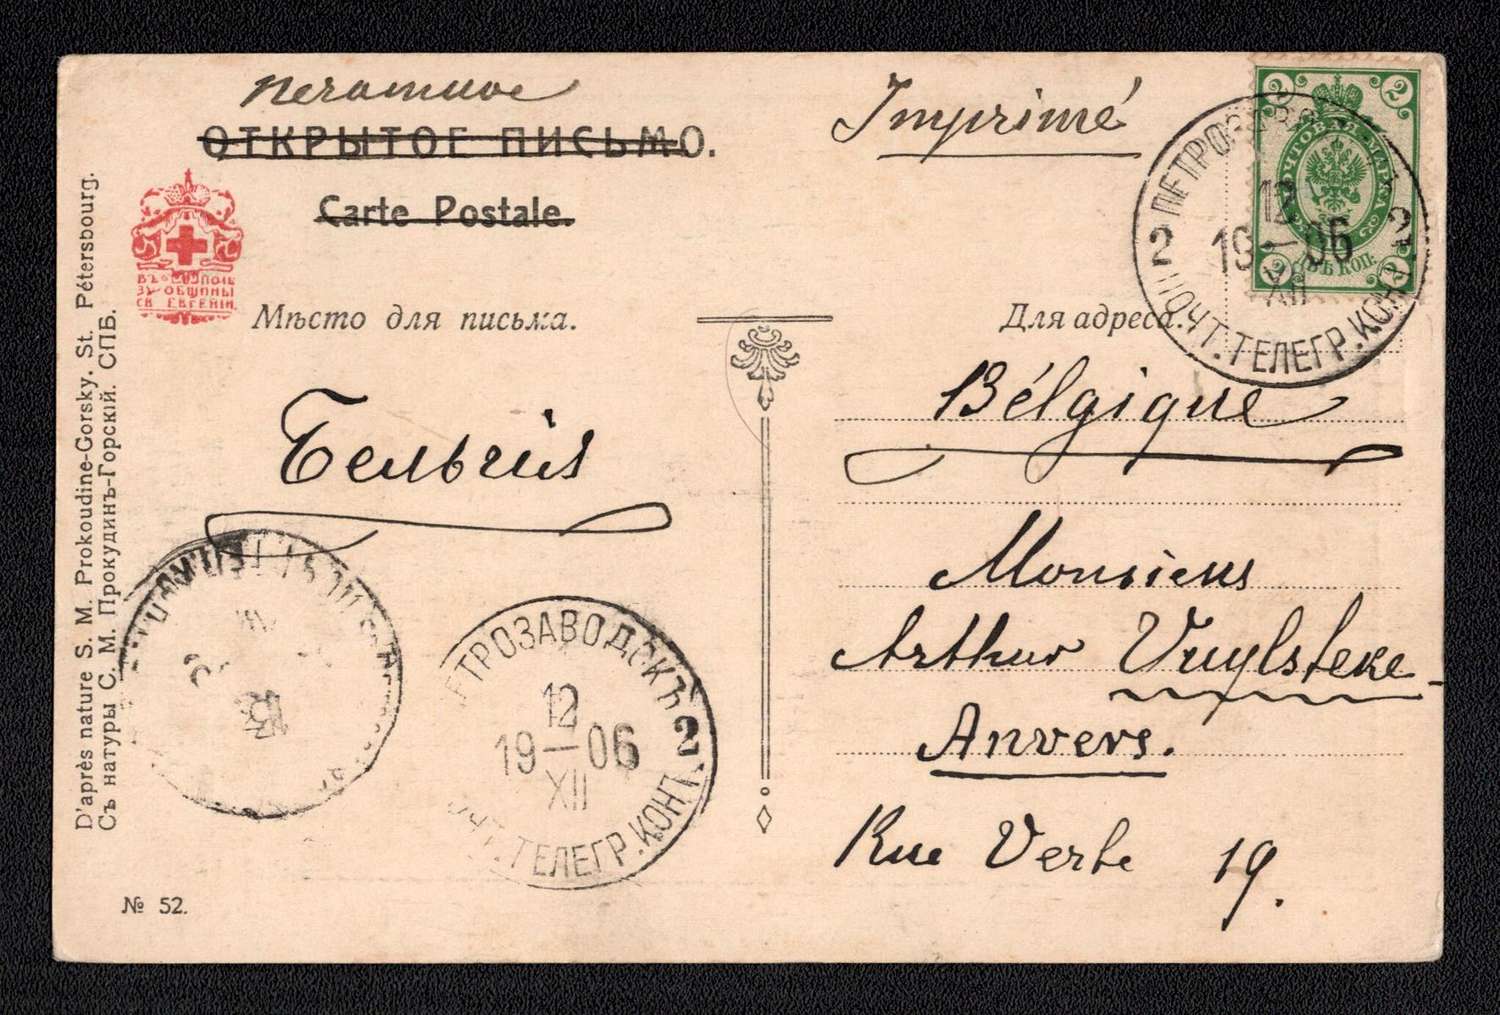 Печатное
ОТКРЫТОЕ ПИСЬМО.
Carte Postale.
Imprimé
2 2
ПОЧТОВАЯ МАРКА
ДВѢ КОП.
2 2
ПЕТРОЗАВ
2 2
12
19—06
XII
ПОЧТ.ТЕЛЕГР.КОН
ВЪ ПОЛЬ
ЗУ ОБЩИНЫ
СВ ЕВГЕНІИ.
Мѣсто для письма.
Для адреса.
D'après nature S. M. Prokoudine-Gorsky. St. Pétersbourg.
Съ натуры С. М. Прокудинъ-Горскій. СПБ.
Бельгія
Bélgique
Monsieur
Arthur Vuylsteke-
Anvers.
Rue Verte 19.
ЕТРОЗАВОДСКЪ
2
12
19—06
XII
ОЧТ.ТЕЛЕГР.КОНТ
№ 52.